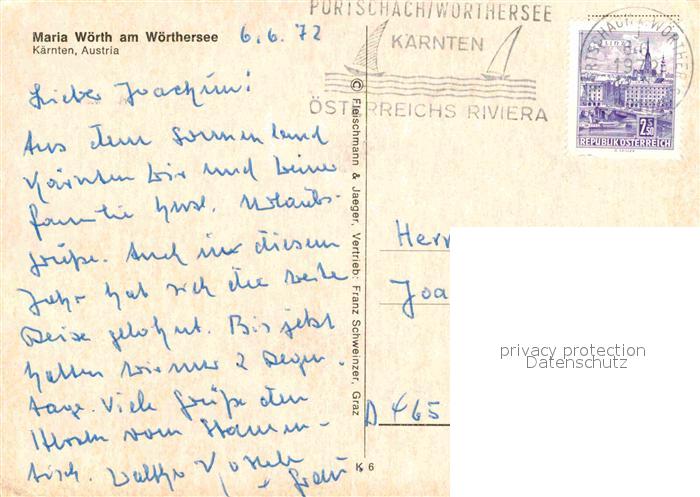 Maria Wörth am Wörthersee
Kärnten, Austria
6.6.72
Lieber Joachim!
Aus dem Sonnenland
Kärnten Dir und Deiner
Familie herzl. Urlaubs-
grüße. Auch in diesem
Jahr hat sich die weite
Reise gelohnt. Bis jetzt
hatten wir nur 2 Regen-
tage. Viele Grüße den
Herren vom Stamm-
tisch. Walter
+ Frau
© Fleischmann & Jaeger, Vertrieb: Franz Schweinzer, Graz
K 6
PÖRTSCHACH/WÖRTHERSEE
KÄRNTEN
ÖSTERREICHS RIVIERA
LINZ
2.50
REPUBLIK ÖSTERREICH
Herr
Joa
D 465
privacy protection
Datenschutz